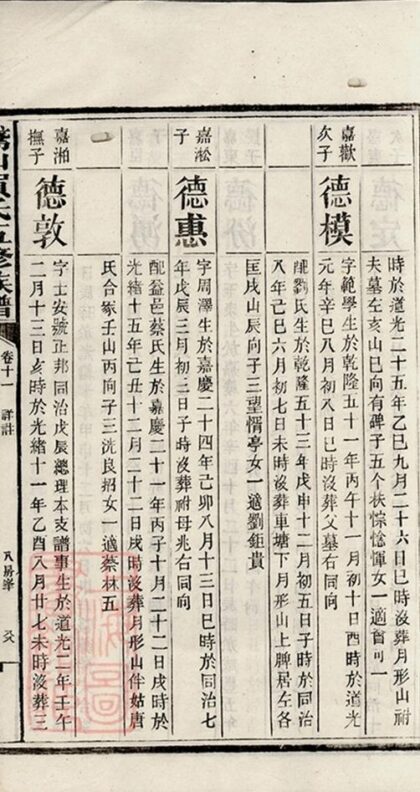 時於道光二十五年乙巳九月二十六日巳時沒葬月形山祔
夫墓左亥山巳向有碑子五个扶悰惗惲女一適
嘉歡
次子
德模
字範學生於乾隆五十一年丙午十一月初十日酉時於道光
元年辛巳八月初八日巳時沒葬父墓右同向
配劉氏生於乾隆五十三年戊申十二月初五日子時於同治
八年己巳六月初七日未時沒葬車塘下月形山上脾居左各
匡戌山辰向子三望惰亭女一適劉鉅貴
嘉淞
子
德惠
字周澤生於嘉慶二十四年己卯八月十三日巳時於同治七
年戊辰三月初三日子時沒葬祔母兆右同向
配益邑蔡氏生於嘉慶二十一年丙子十月二十二日戌時於
光緒十五年己丑十二月二十二日戌時沒葬月形山伴姑唐
氏合冢壬山丙向子三洗良招女一適蔡林五
嘉湘
撫子
德敦
字士安號正邦同治戊辰總理本支譜事生於道光二年壬午
二月十三日亥時於光緒十一年乙酉八月廿七未時沒葬三
氏五修族譜
卷十一
詳註